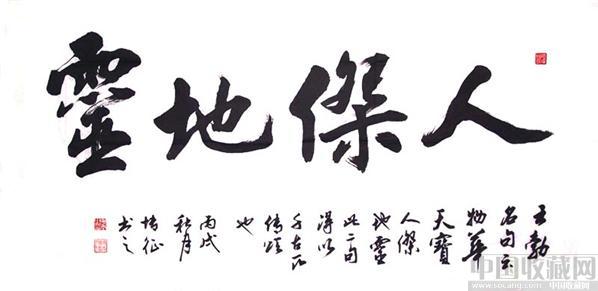 人傑地靈
王勃
名句云
物華
天寶
人傑
地靈
此二句
得以
千古所
傳頌
也
丙戌
秋月
征
書之
中国收藏网
www.socang.com 中国收藏网